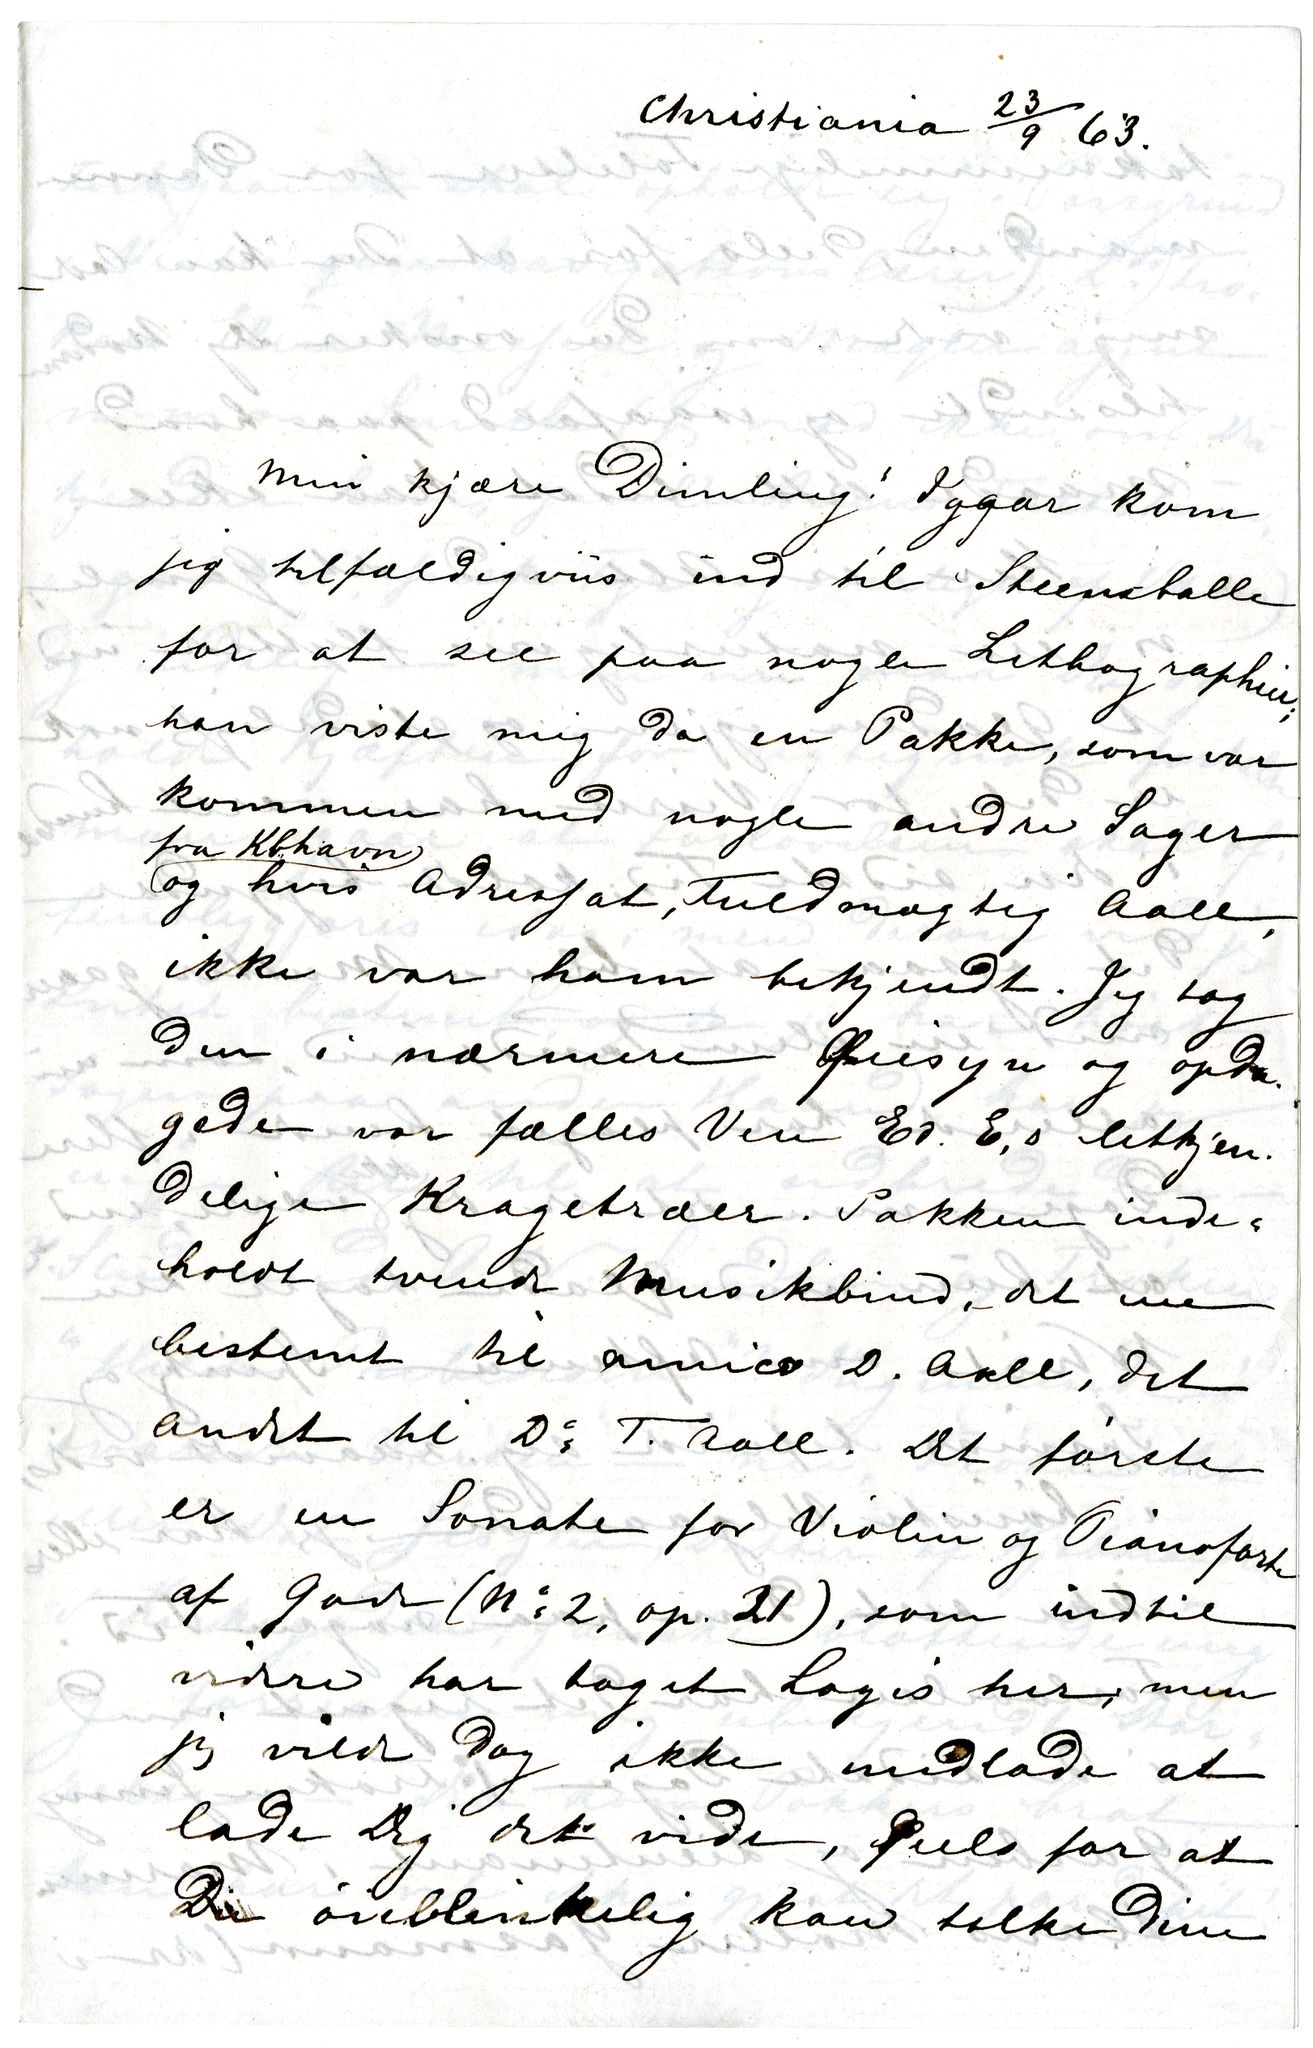 Christiania 23/9 63.
Min kjære Dimling! Iggar kom
jeg tilfældigviis ind til Steensballe
for at see paa nogle Lithographier;
han viste mig da en Pakke, som var
kommen med nogle andre Sager
fra Kbhavn
og hvis Adressat, Fuldmægtig Aall,
ikke var ham bekjendt. Jeg tog
den i nærmere Øiesyn og opda-
gede vor fælles Ven Ed. E,s letkjen-
delige Kragetræer. Pakken inde-
holdt tvende Musikbind, det ene
bestemt til amico D. Aall, det
andet til Do: T. Aall. Det første
er en Sonate for Violin og Pianoforte
af Gade (No: 2, op. 21), som indtil
videre har taget Logis her, men
jeg vilde dog ikke undlade at
lade Dig det vide, deels for at
Du øieblinkelig kan tolke Dine